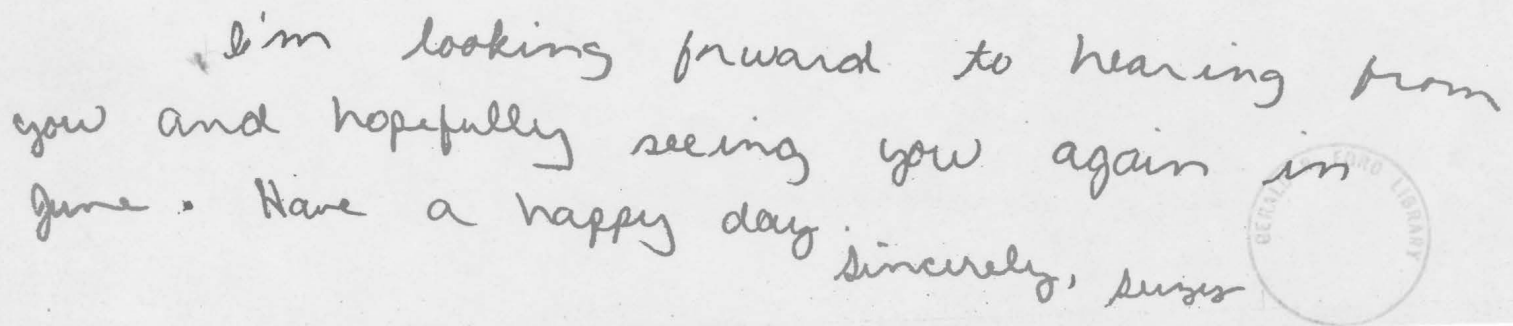 I'm looking forward to hearing from
you and hopefully seeing you again in
June. Have a happy day.
Sincerely, Suzy
GERALD R. FORD LIBRARY